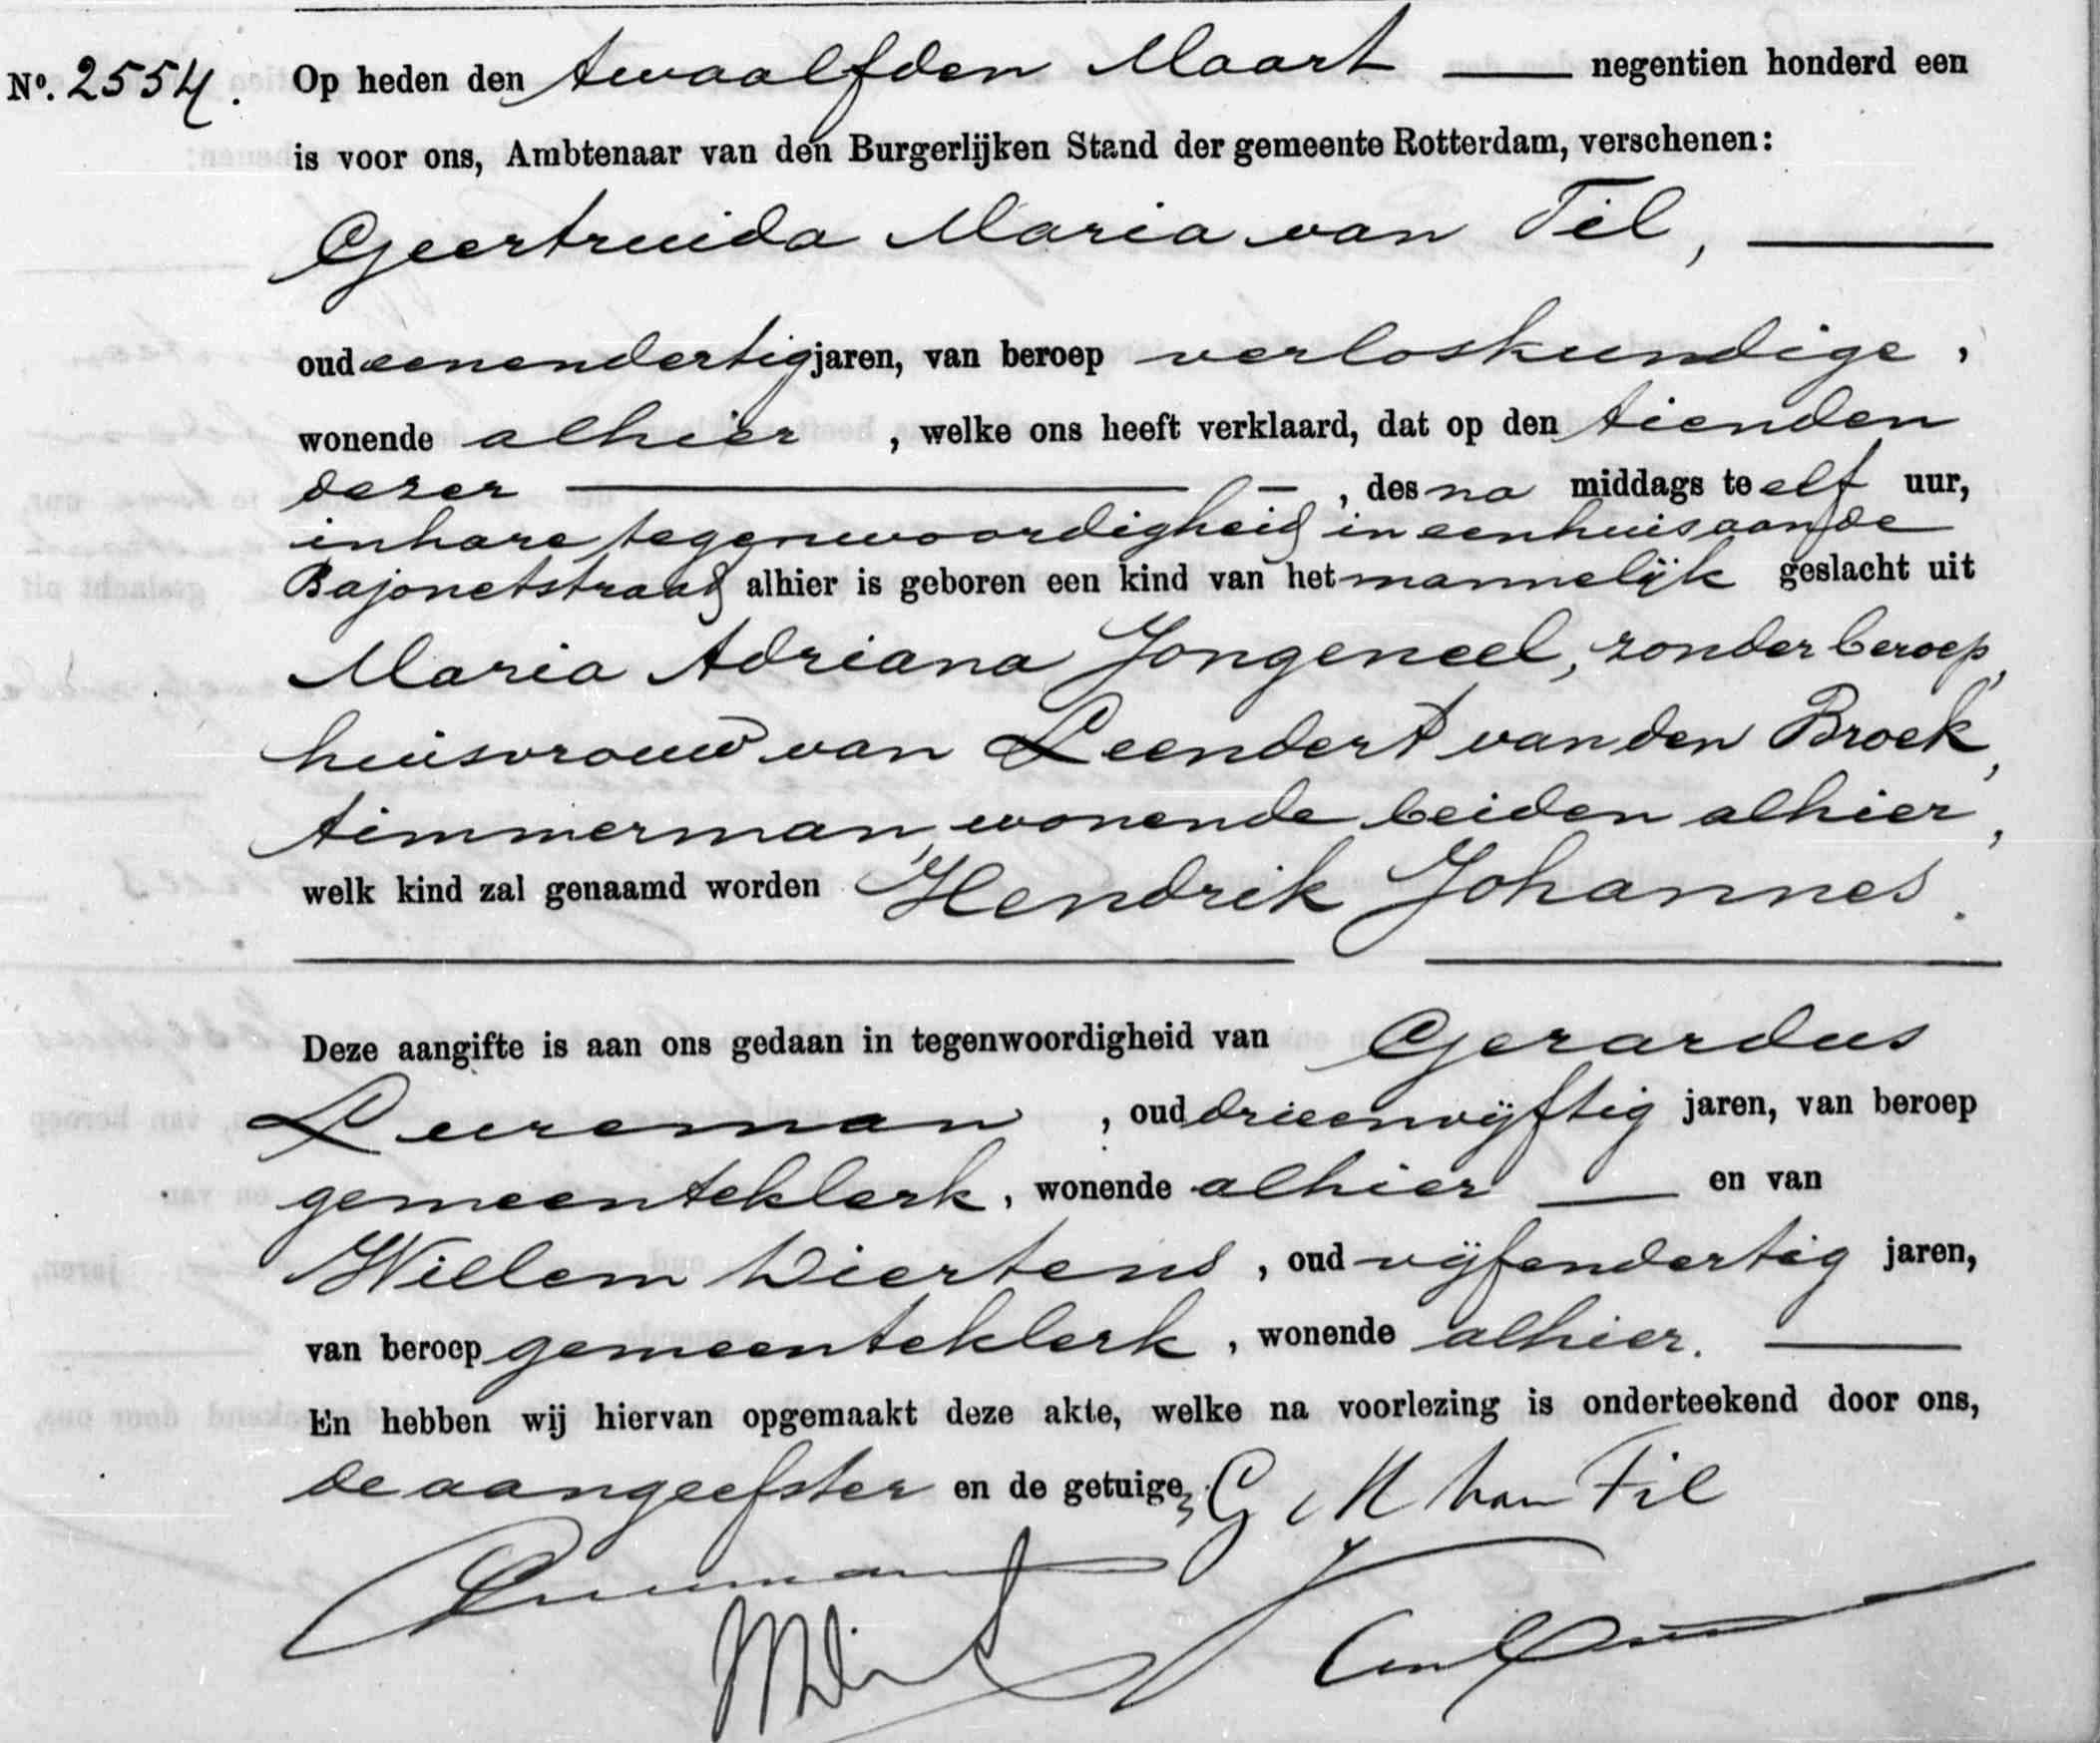 Nº. 2554. Op heden den twaalfden Maart — negentien honderd een
is voor ons, Ambtenaar van den Burgerlijken Stand der gemeente Rotterdam, verschenen:
Geertruida Maria van Til, —
oud eenendertig jaren, van beroep verloskundige,
wonende alhier, welke ons heeft verklaard, dat op den tienden
dezer — , des na middags te elf uur,
in hare tegenwoordigheid in een huis aan de
Bajonetstraat alhier is geboren een kind van het mannelijk geslacht uit
Maria Adriana Jongeneel, zonder beroep,
huisvrouw van Leendert van den Broek,
timmerman, wonende beiden alhier,
welk kind zal genaamd worden Hendrik Johannes.
Deze aangifte is aan ons gedaan in tegenwoordigheid van Gerardus
Lureman, oud drieenvijftig jaren, van beroep
gemeenteklerk, wonende alhier — en van
Willem Diertens, oud vijfendertig jaren,
van beroep gemeenteklerk, wonende alhier. —
En hebben wij hiervan opgemaakt deze akte, welke na voorlezing is onderteekend door ons,
de aangeefster en de getuigen. G M van Til